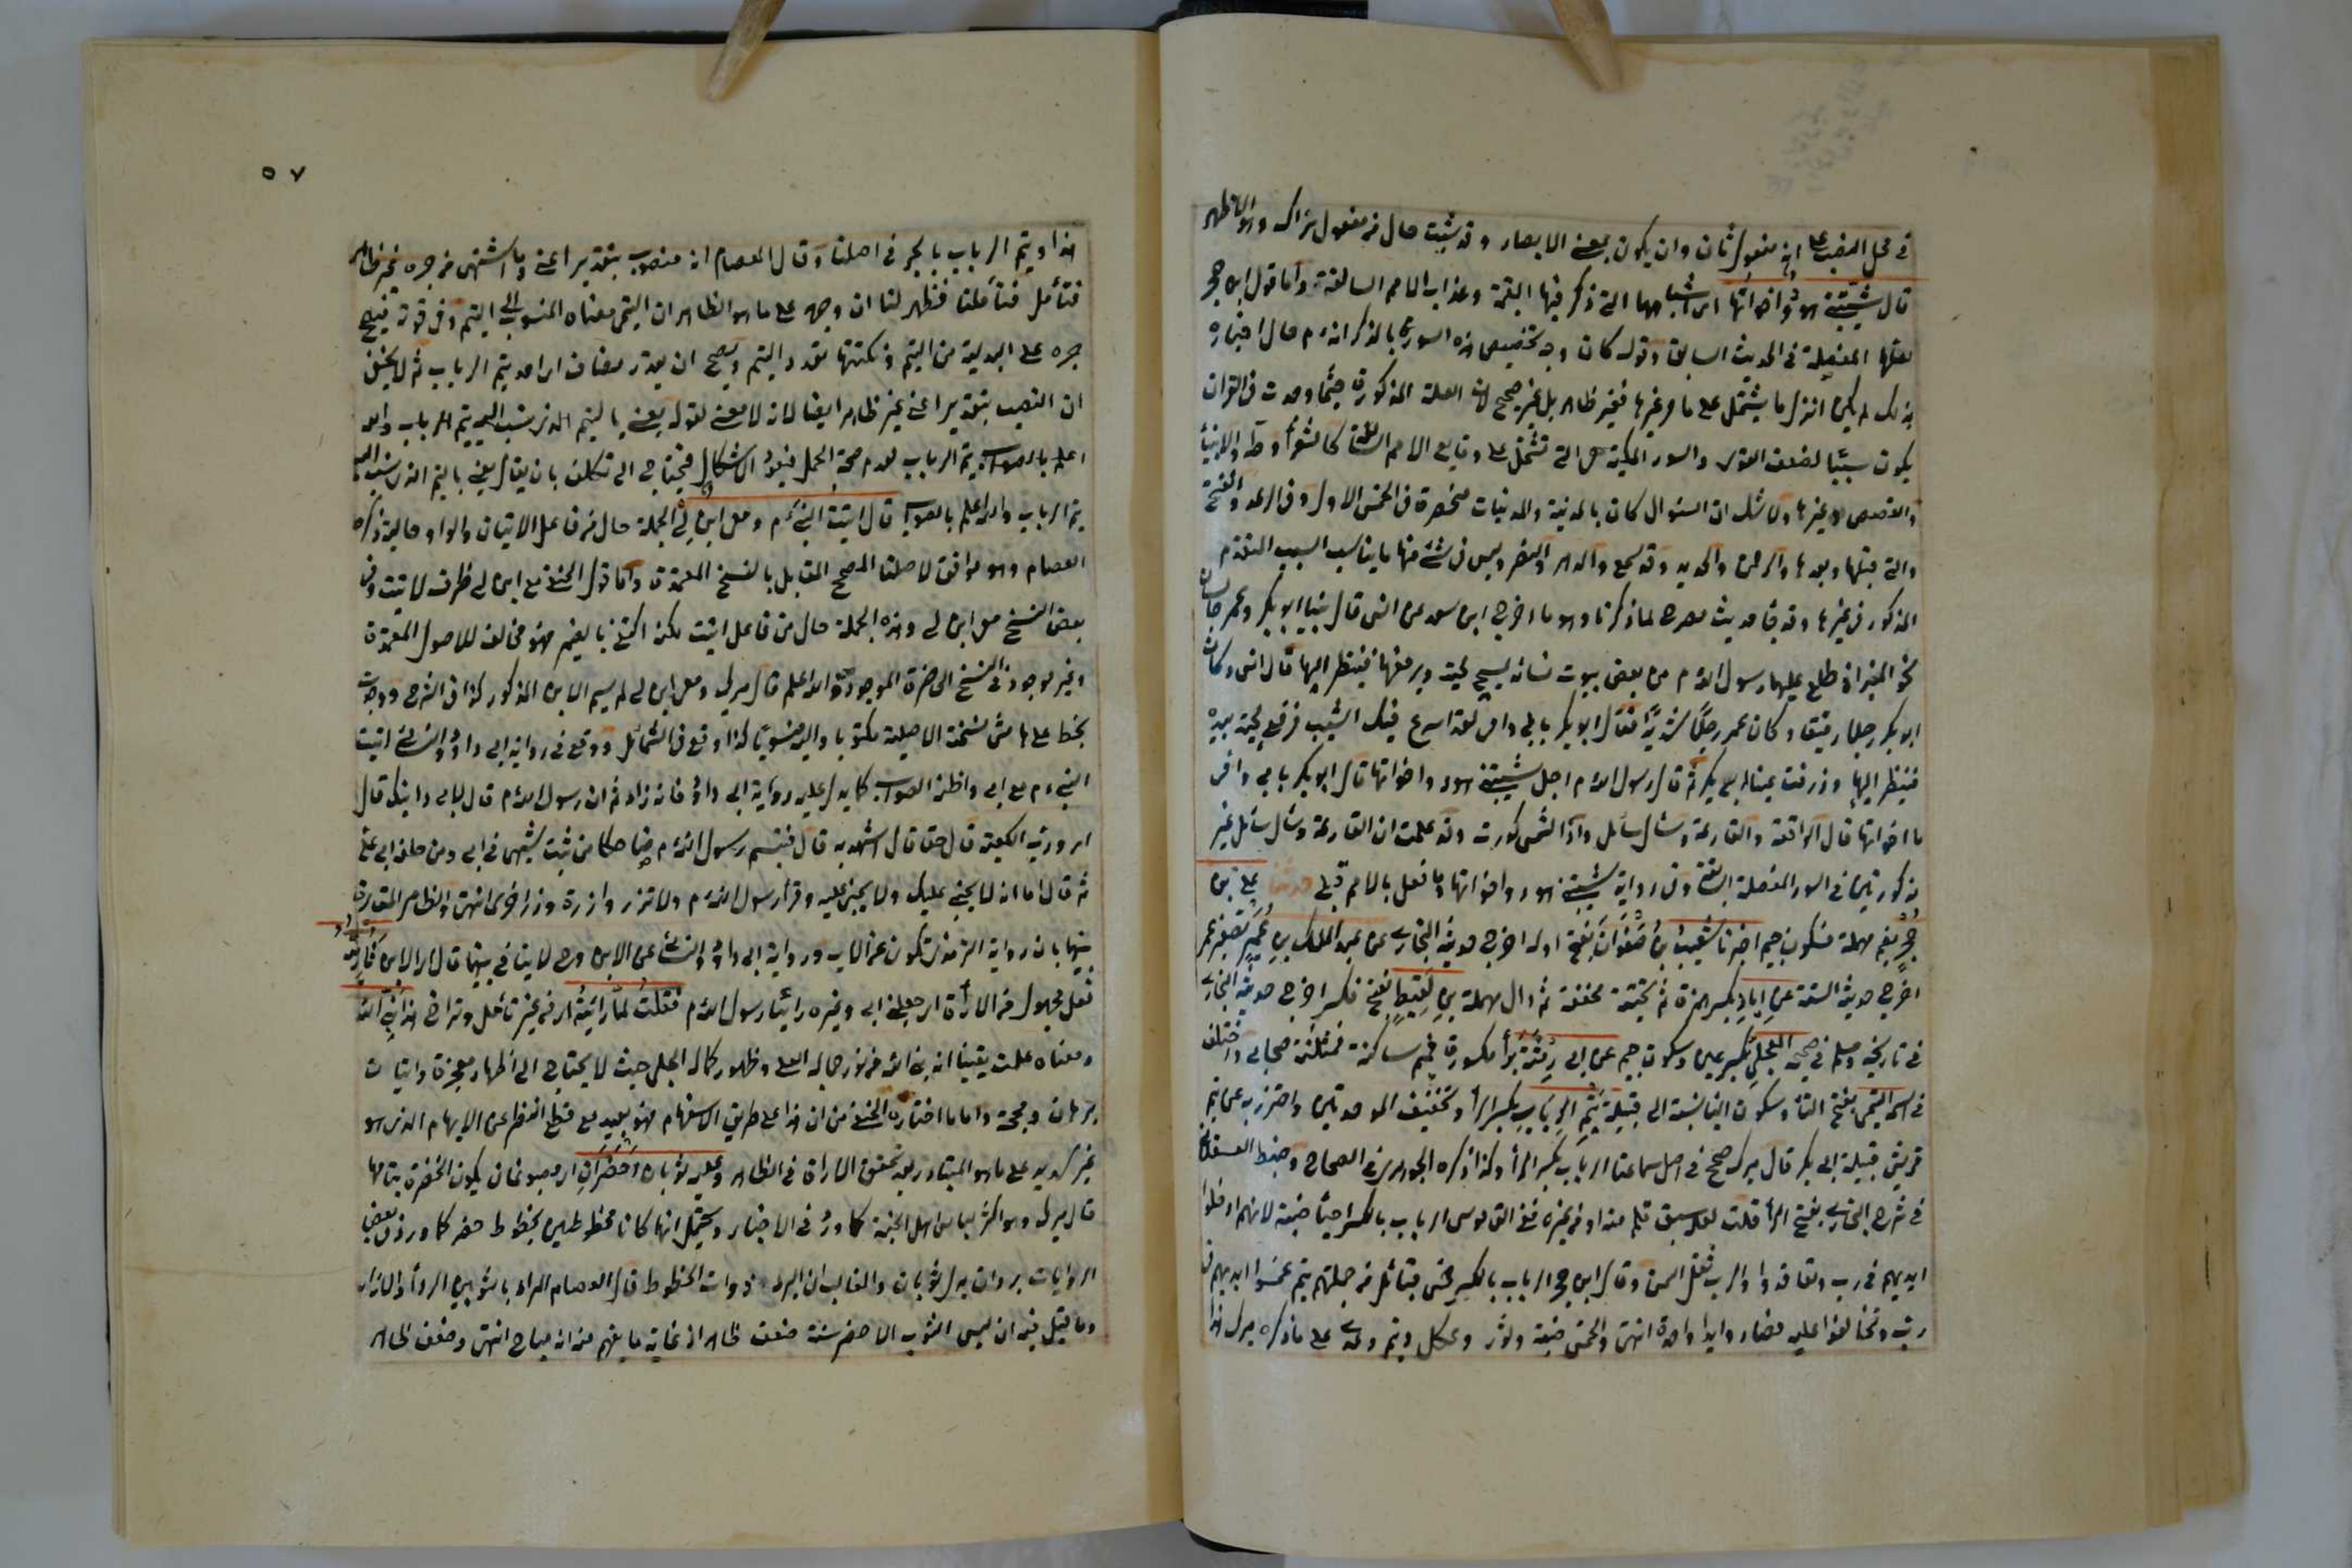 في محل النصب على انه مفعول ثان وان يكون بمعنى الابصار وقد شبت حال من مفعول نراك وهو الاظهر
قال شيبتني هود واخواتها اي اشباهها التي ذكر فيها القيمة وعذاب الامم السالفة واما قول ابن حجر
المفصلة في الحديث السابق وقوله كان وجه تخصيص هذه السور بالذكر انه م حال اخباره
بذلك لم يكن انزل ما يشتمل على ما مر غيرها فغير ظاهر بل غير صحيح لان العلة المذكورة حيثما وجدت في القران
يكون سببا لضعف القوى والسور المكية التي تشتمل على وقايع الامم السالفة كالشعرا وطه والانبيا
والقصص وغيرها ولا شك ان السؤال كان بالمدينة والمدنيات منحصرة في الخمس الاول وفي الرعد والفتح
والتي قبلها وبعدها والرحمن والحديد وقد سمع والدهر والنصر وليس في شئ منها ما يناسب السبب المتقدم
المذكور في غيرها وقد جا حديث مصرح لما ذكرنا وهو ما اخرج ابن سعد عن انس قال بينا ابو بكر وعمر جالسان
نحو المنبر اذ طلع عليهما رسول الله م من بعض بيوت نسائه يمسح لحيته ويرفعها فينظر اليها قال انس وكان
ابو بكر رجلا رقيقا وكان عمر رجلا شديدا فقال ابو بكر بابي وامي لقد اسرع فيك الشيب فرفع لحيته بيده
فينظر اليها وذرفت عينا ابي بكر ثم قال رسول الله م اجل شيبتني هود واخواتها قال ابو بكر بابي وامي
ما اخواتها قال الواقعة والقارعة وسئل سائل واذا الشمس كورت وقد علمت ان القارعة وسئل سائل غير
مذكورتين في السور المفصلة السابقة وفي رواية شيبتني هود واخواتها وما فعل بالامم قبلي حدثنا علي بن
حجر بضم مهملة فسكون جيم اخبرنا شعيب بن صفوان بفتح اوله اخرج حديثه البخاري عن عبد الملك بن عمير تصغير عمر
اخرج حديثه الستة عن اياد بكسر همزة ثم تحتية مخففة ثم دال مهملة بن لقيط بفتح فكسر اخرج حديثه البخاري
في تاريخه ومسلم في صحيحه العجلي بكسر عين وسكون جيم عن ابي رمثة برأ مكسورة فميم ساكنة فمثلثة صحابي واختلف
في اسمه التيمي بفتح التا وسكون اليا نسبة الى قبيلة تيم الرباب بكسر الرا وتخفيف الموحدتين واحترز به عن تيم
قريش قبيلة ابي بكر قال ميرك صحح في اصل سماعنا الرباب بكسر الرا وكذا ذكره الجوهري في الصحاح وضبط العسقلاني
في شرح البخاري بفتح الرا قلت لعله سبق قلم منه او من غيره ففي القاموس الرباب بالكسر احيا ضبة لانهم ادخلوا
ايديهم في رب وتعاقدوا والرب ثفل السمن وقال ابن حجر الرباب بالكسر خمس قبائل من جملتهم تيم غمسوا ايديهم في
رب وتحالفوا عليه فصاروا يدا واحدة انتهى والخمس ضبة وثور وعكل وتيم وعدي على ما ذكره ميرك هذا
٥٧
هذا وتيم الرباب بالجر في اصلنا وقال العصام انه منصوب بتقدير اعني وما اشتهر من جره غير ظاهر
فتأمل فتأملنا فظهر لنا ان وجهه على ما هو الظاهر ان التيمي معناه المنسوب الى التيم وفي قوته فيصح
جره على البدلية من التيم ونكتتها تعدد التيم ويصح ان يقدر مضاف اي احد تيم الرباب ثم لا يخفى
ان النصب بتقدير اعني غير ظاهر ايضا لانه لا معنى لقوله يعني بالتيم الذي نسب اليه تيم الرباب والله
اعلم بالصواب تيم الرباب لعدم صحة الحمل فيعود الاشكال فيحتاج الى تكلف بان يقال يعني بالتيم الذي نسب اليه
تيم الرباب والله اعلم بالصواب قال اتيت النبي م ومعي ابن لي الجملة حال من فاعل الاتيان والواو حالية ذكره
العصام وهو موافق لاصلنا المصحح المقابل بالنسخ المعتمدة واما قول الحنفي مع ابن لي ظرف لاتيت وفي
بعض النسخ معي ابن لي وهذه الجملة حال من فاعل اتيت لكنه اكتفى بالضمير فهو مخالف للاصول المعتمدة
وغير موجود في النسخ الحاضرة الموجودة والله اعلم قال ميرك ومعي ابن لي لم يسم الابن المذكور كذا في الشرح ووجدت
بخط على هامش نسخته الاصلية مكتوبا واليه منسوبا كذا وقع في الشمائل ووقع في رواية ابي داود والنسائي اتيت
النبي م مع ابي واظنه الصواب كما يدل عليه رواية ابي داود فانه زاد ثم ان رسول الله م قال لابي ابنك قال
اي ورب الكعبة قال حقا قال اشهد به قال فتبسم رسول الله م ضاحكا من ثبت شبهي في ابي ومن حلف ابي علي
ثم قال اما انه لا يجني عليك ولا تجني عليه وقرأ رسول الله م ولا تزر وازرة وزر اخرى انتهى والظاهر المقارن
بينهما بان رواية الترمذي تكون عن الاب ورواية ابي داود والنسائي عن الابن وح لا ينافي بينهما قال اي الابن فاريته
فعل مجهول من الاراة اي جعلني ابي وغيره رائيا رسول الله م فقلت لما رايته اي من غير تأمل وتراخ هذا نبي الله
ومعناه علمت يقينا انه نبي الله من نور جماله العلي وظهور كماله الجلي حيث لا يحتاج الى اظهار معجزة واتيان
برهان وحجة واما ما اختاره الحنفي من ان هذا على طريق الاستفهام فهو بعيد مع قطع النظر عن الابهام الذي هو
غير سديد على ما هو المتبادر بعد تحقق الاراة في الظاهر وعليه ثوبان اخضران اي مصبوغان بلون الخضرة بتمامها
قال ميرك وهو اكثر لباس اهل الجنة كما ورد في الاخبار ويحتمل انهما كانا مخططين بخطوط خضر كما ورد في بعض
الروايات بردان بدل ثوبان والغالب ان البرد ذوات الخطوط قال العصام المراد بالثوبين الرداء والازار
وما قيل فيه ان لبس الثوب الاخضر سنة ضعفه ظاهر اذ غاية ما يفهم منه انه مباح انتهى وضعفه ظاهر